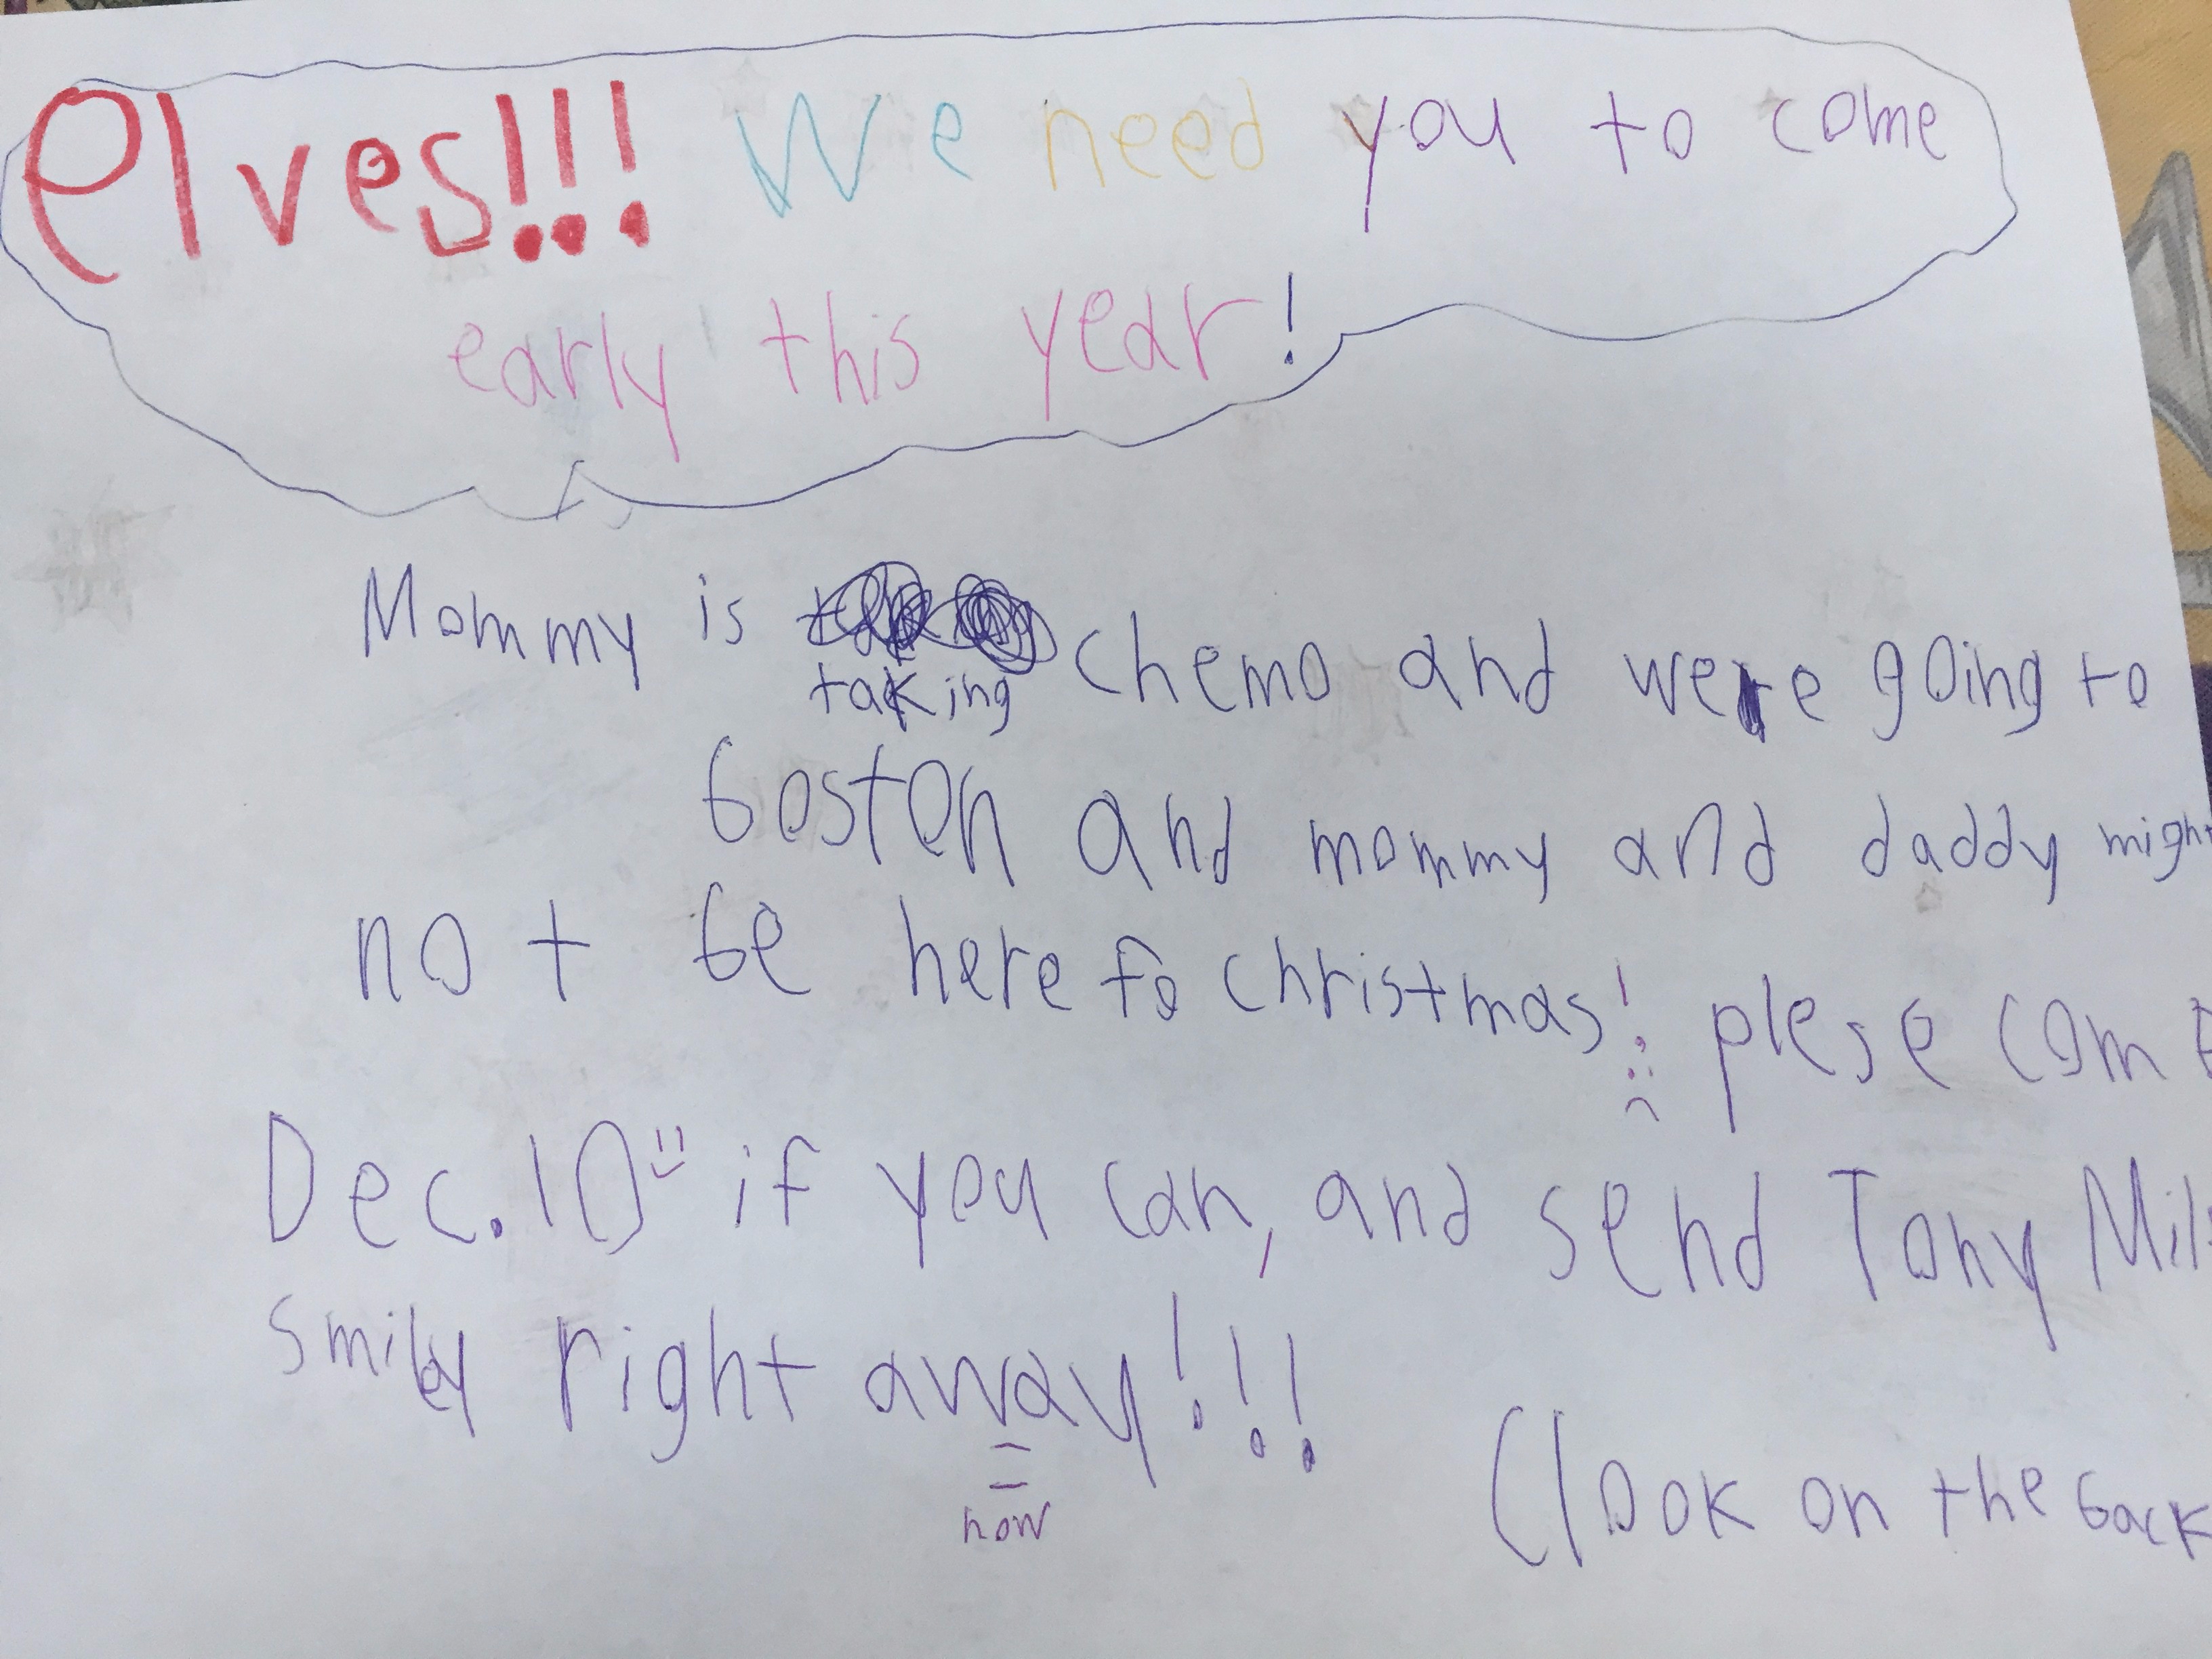 elves!!! We need you to come
early this year!
Mommy is taking chemo and were going to
boston and mommy and daddy might
not be here fo christmas! plese come
Dec. 10 if you can, and send Tony
smiley right away!!!
now
(look on the back